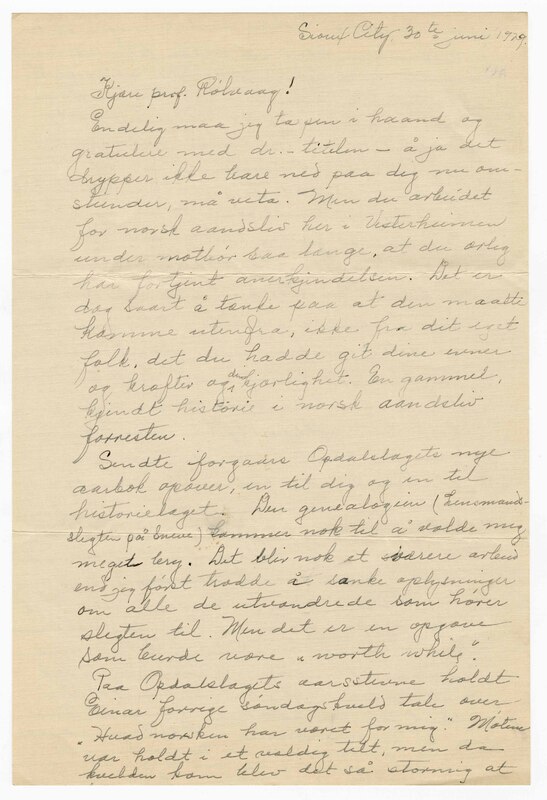 Sioux City, 30te juni 1929.
Kjære prof. Rølvaag!
Endelig maa jeg ta pen i haand og
gratulere med dr. - titelen - å ja det
drypper ikke bare ned paa dig nu om-
stunder, må vita. Men du arbeidet
for norsk aandsliv her i Vesterheimen
under motbør saa lange, at du ærlig
har fortjent anerkjendelsen. Det er
dog saart å tænke paa at den maatte
komme utenfra, ikke fra dit eget
folk, det du hadde git dine evner
og kræfter og din kjærlighet. En gammel,
kjendt historie i norsk aandsliv
forresten.
Sendte forgaars Opdalslagets nye
aarbok opover, en til dig og en til
historielaget. Den genealogien (Lensmands-
slegten på Sneve) kommer nok til å volde mig
meget bry. Det blir nok et sværere arbeid
end jeg først trodde å sanke oplysninger
om alle de utvandrede som hører
slegten til. Men det er en opgave
som burde være "worth while".
Paa Opdalslagets aarsstevne holdt
Einar forrige søndagskveld tale over
"Hvad norsken har været for mig." Møtene
var holdt i et vældig telt, men da
kvelden kom blev det så stormig at